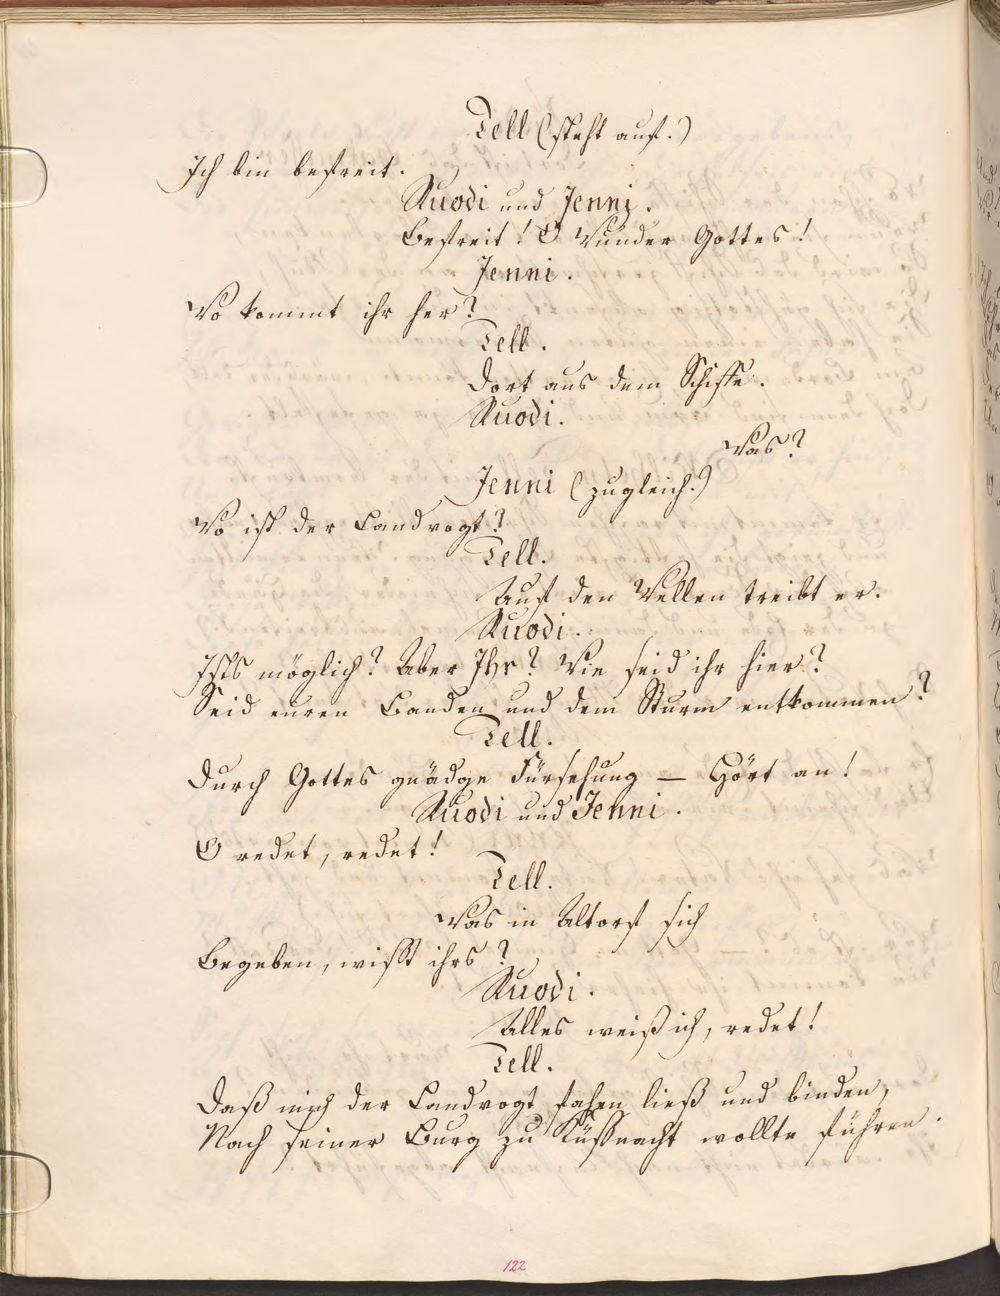 Tell (steht auf.)
Ich bin befreit.
Ruodi und Jenni.
Befreit! O Wunder Gottes!
Jenni.
Wo kommt ihr her?
Tell.
Dort aus dem Schiffe.
Ruodi.
Was?
Jenni (zugleich.)
Wo ist der Landvogt?
Tell.
Auf den Wellen treibt er.
Ruodi.
Ists möglich? Aber Ihr? Wie seid ihr hier?
Seid euren Banden und dem Sturm entkommen?
Tell.
Durch Gottes gnädge Fürsehung — Hört an!
Ruodi und Jenni.
O redet, redet!
Tell.
Was in Altorf sich
Begeben, wißt ihrs?
Ruodi.
Alles weiß ich, redet!
Tell.
Daß mich der Landvogt fahen ließ und binden,
Nach seiner Burg zu Küßnacht wollte führen.
122